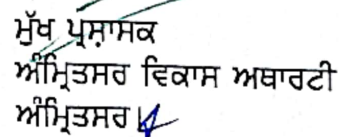 ਮੁੱਖ ਪ੍ਰਸ਼ਾਸਕ
ਅੰਮ੍ਰਿਤਸਰ ਵਿਕਾਸ ਅਥਾਰਟੀ
ਅੰਮ੍ਰਿਤਸਰ।